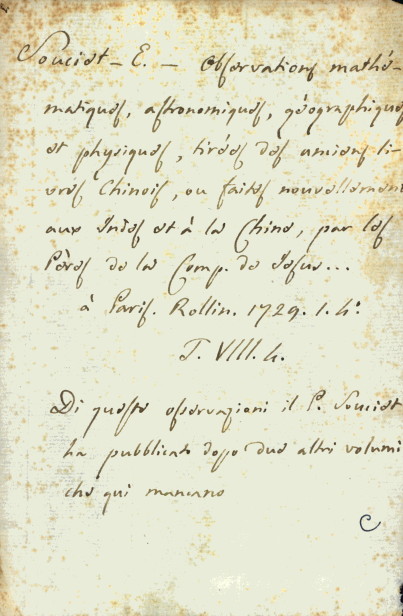 Souciet - E. - Observations mathé-
matiques, astronomiques, géographiques
et physiques, tirées des anciens li-
vres Chinois, ou faites nouvellement
aux Indes et à la Chine, par les
Pères de la Comp. de Jesus...
à Paris. Rollin. 1729. 1. 4°.
T. VIII. 4.
Di queste osservazioni il P. Souciet
ha pubblicato dopo due altri volumi
che qui mancano
C